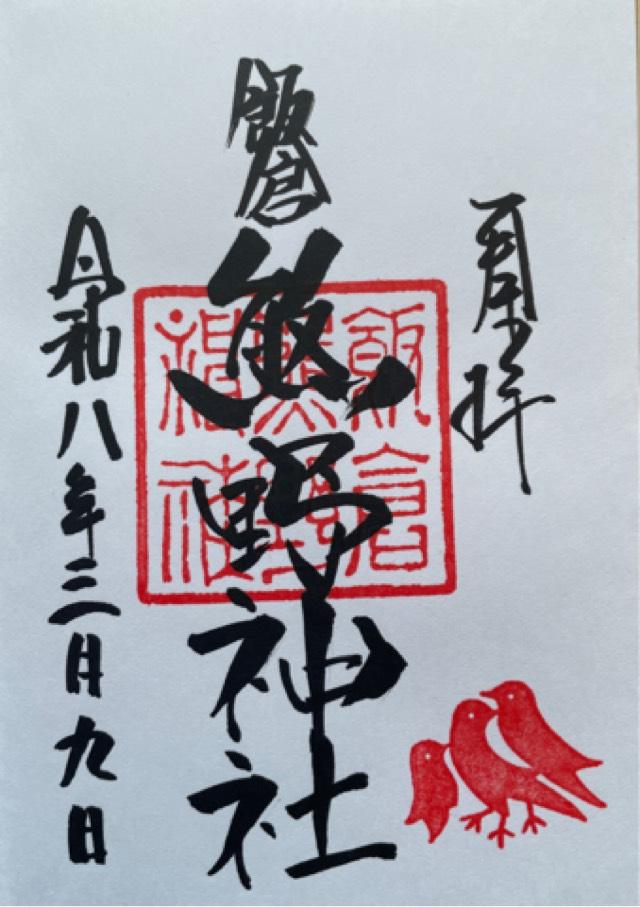 夏拝
飯倉
熊野神社
飯倉
熊野
神社
令和八年三月九日